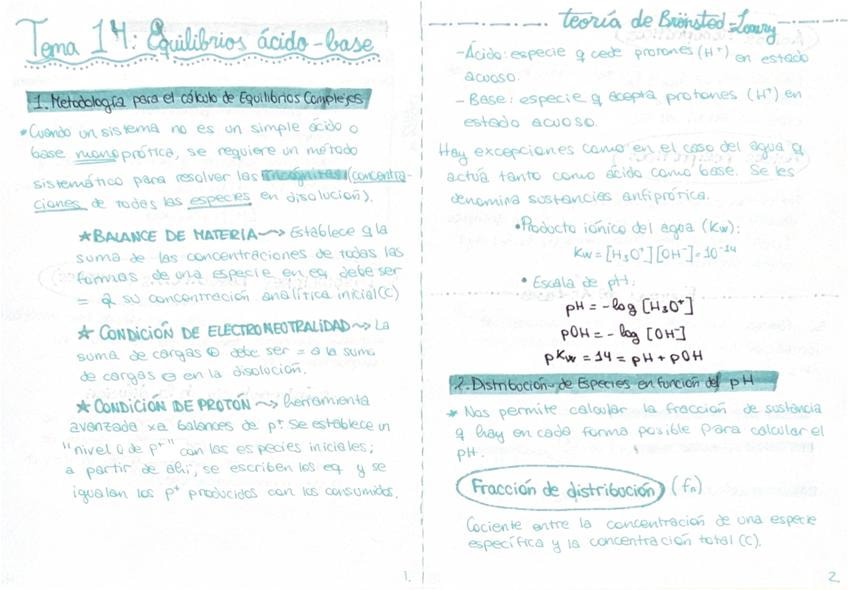 Tema 14: Equilibrios ácido-base
1. Metodología para el cálculo de Equilibrios Complejos
• Cuando un sistema no es un simple ácido o
base monoprótica, se requiere un método
sistemático para resolver las incógnitas (concentra-
ciones de todas las especies en disolución).
★ BALANCE DE MATERIA ~> Establece q la
suma de las concentraciones de todas las
formas de una especie en eq. debe ser
= a su concentración analítica inicial (C)
★ CONDICIÓN DE ELECTRONEUTRALIDAD ~> La
suma de cargas ⊕ debe ser = a la suma
de cargas ⊖ en la disolución.
★ CONDICIÓN DE PROTÓN ~> herramienta
avanzada xa balances de p⁺. Se establece un
"nivel 0 de p⁺" con las especies iniciales;
a partir de ahí, se escriben los eq. y se
igualan los p⁺ producidos con los consumidos.
1.
teoría de Brönsted-Lowry
- Ácido: especie q cede protones (H⁺) en estado
acuoso.
- Base: especie q acepta protones (H⁺) en
estado acuoso.
Hay excepciones como en el caso del agua q
actúa tanto como ácido como base. Se les
denomina sustancias anfiprótica.
• Producto iónico del agua (Kw):
Kw = [H₃O⁺][OH⁻] = 10⁻¹⁴
• Escala de pH:
pH = -log [H₃O⁺]
pOH = - log [OH⁻]
pKw = 14 = pH + pOH
2. Distribución de Especies en función del pH
* Nos permite calcular la fracción de sustancia
q hay en cada forma posible para calcular el
pH.
Fracción de distribución (fn)
Cociente entre la concentración de una especie
específica y la concentración total (C).
2.